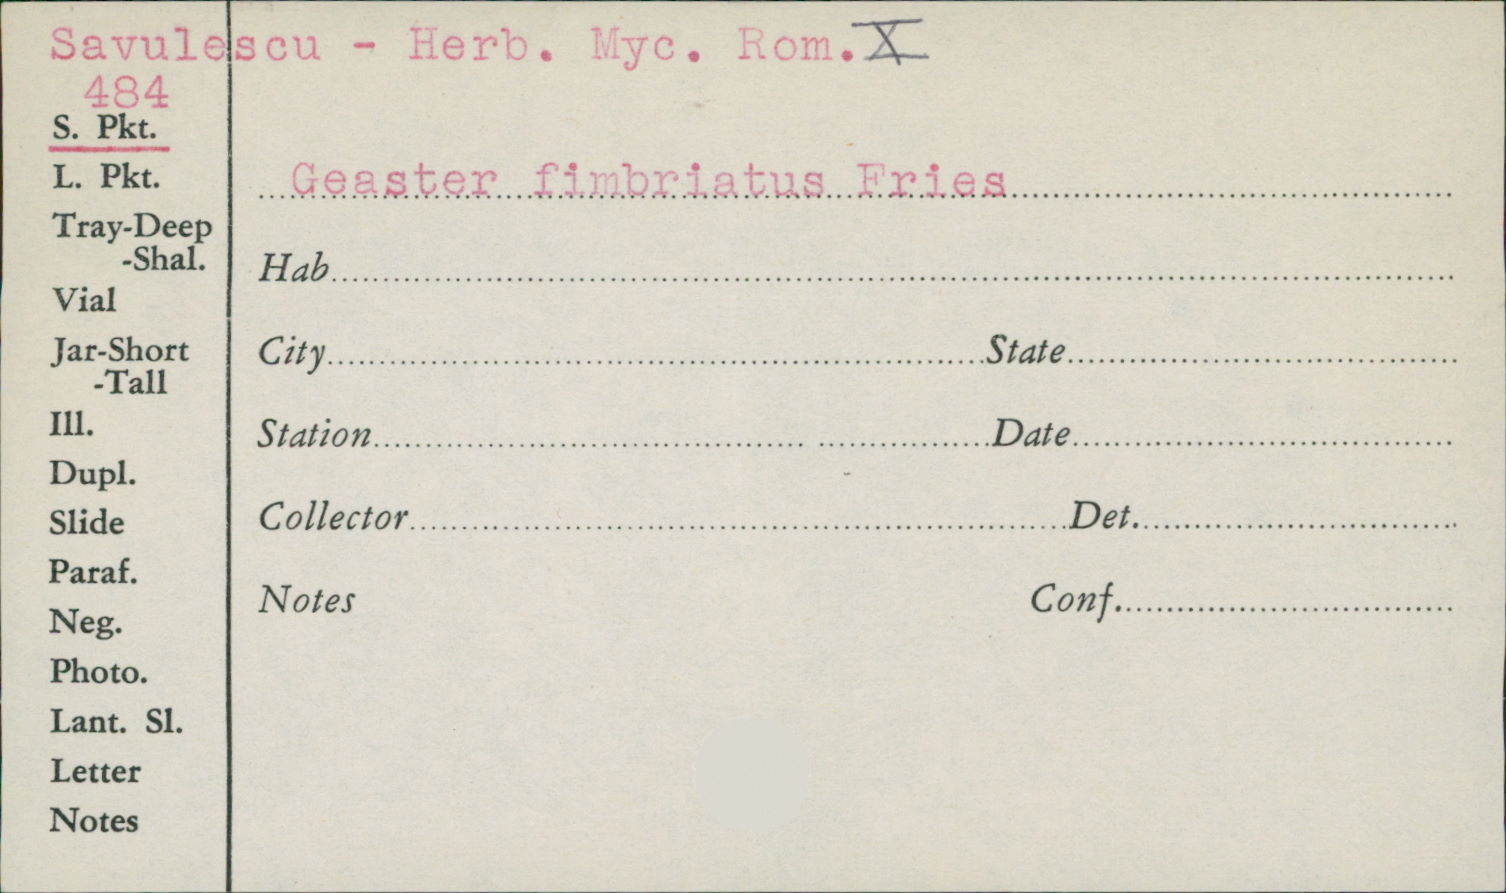 Savulescu - Herb. Myc. Rom. X
484
S. Pkt.
L. Pkt.
Geaster fimbriatus Fries
Tray-Deep
-Shal.
Hab
Vial
Jar-Short
-Tall
City State
Ill.
Station Date
Dupl.
Slide
Collector Det.
Paraf.
Neg.
Notes Conf.
Photo.
Lant. Sl.
Letter
Notes